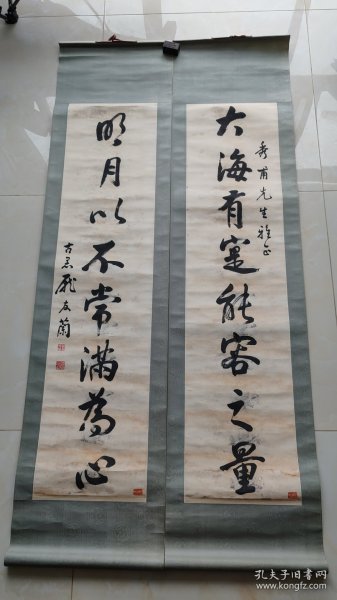 大海有寔能容之量
秀甫先生雅正
明月以不常满為心
古晃龐友蘭
孔夫子旧书网
www.kongfz.com